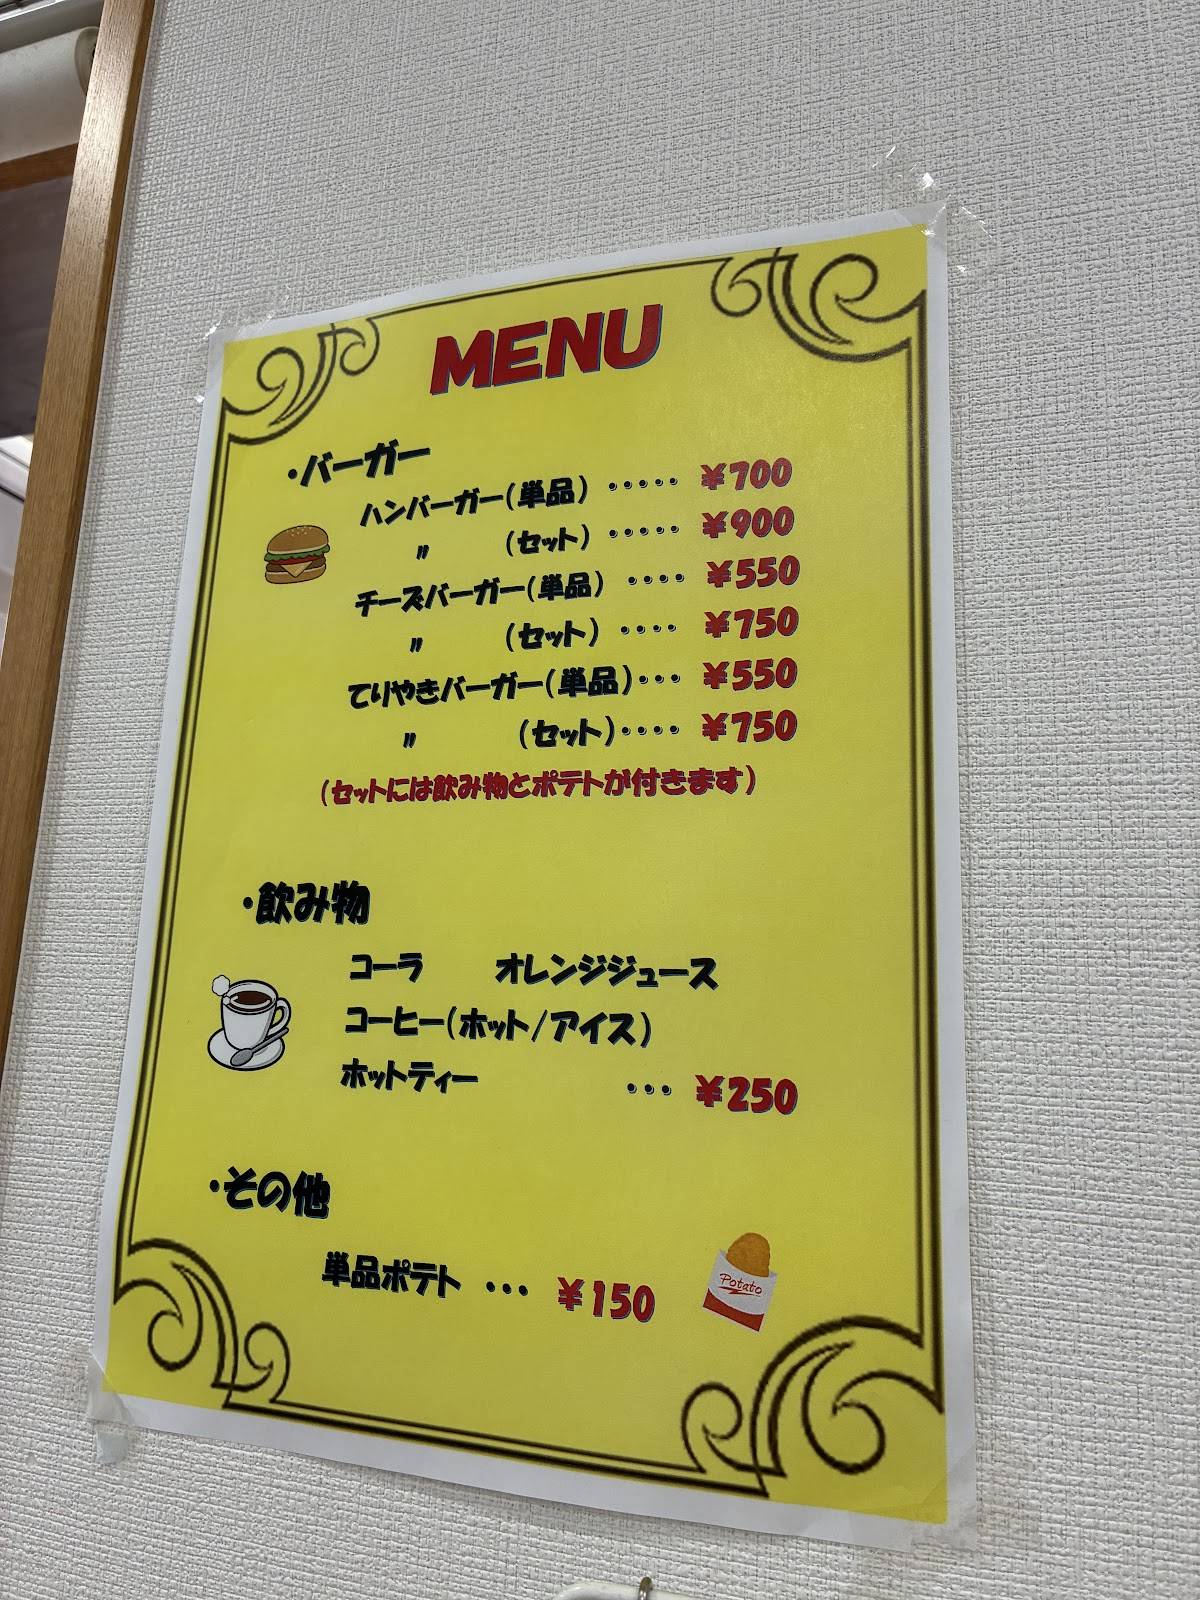 MENU
・バーガー
ハンバーガー(単品) ····· ¥700
〃 (セット) ····· ¥900
チーズバーガー(単品) ···· ¥550
〃 (セット) ···· ¥750
てりやきバーガー(単品)··· ¥550
〃 (セット)···· ¥750
(セットには飲み物とポテトが付きます)
・飲み物
コーラ オレンジジュース
コーヒー(ホット/アイス)
ホットティー ··· ¥250
・その他
単品ポテト ··· ¥150
Potato